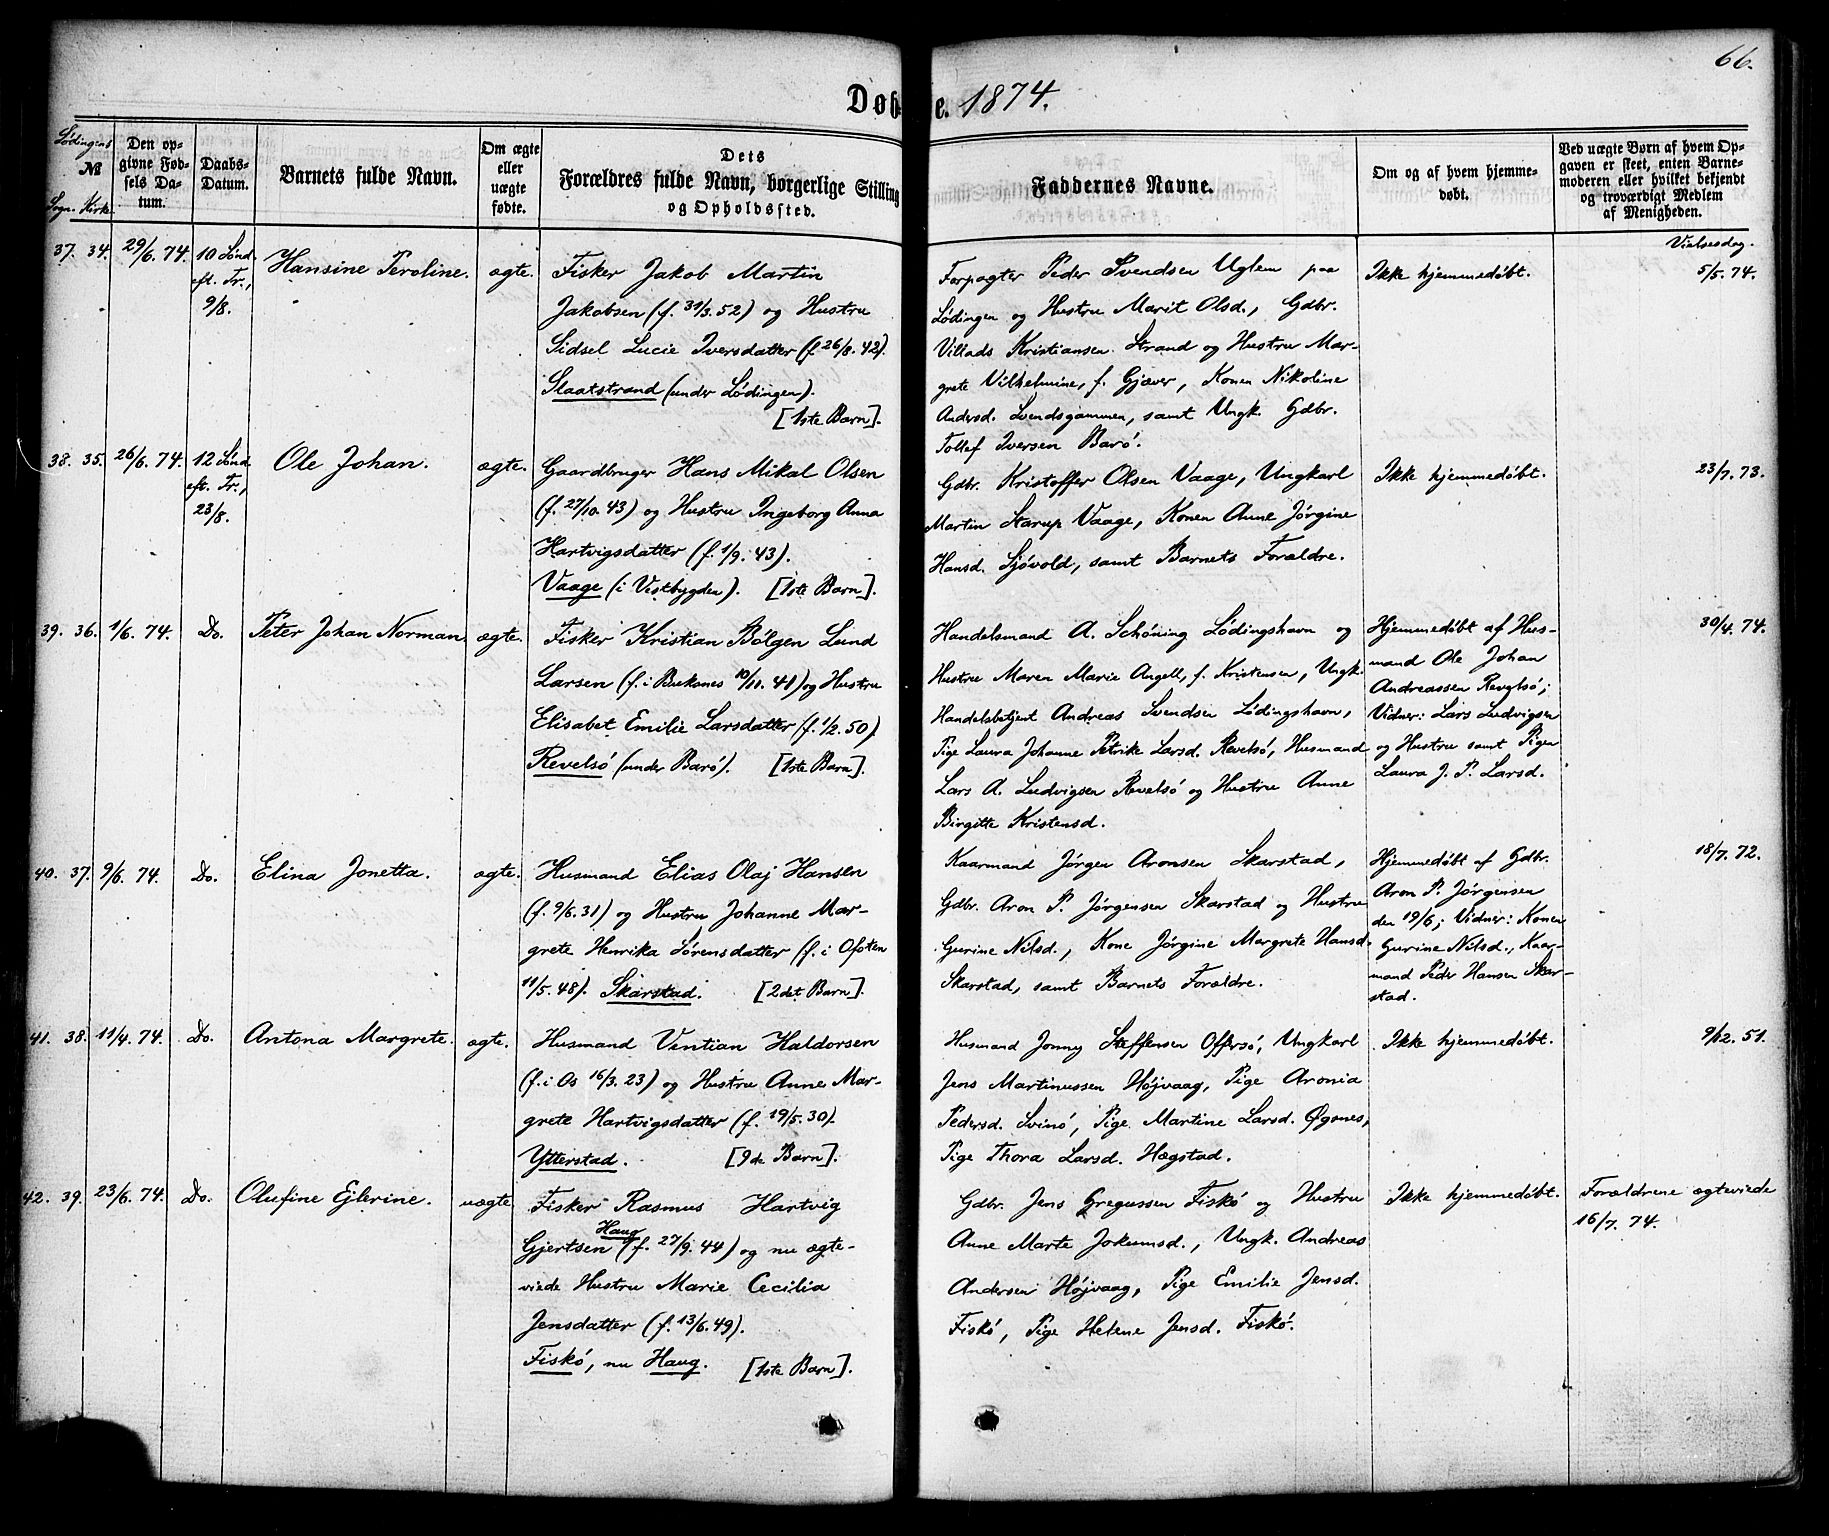 66.
Døbte. 1874.
Lødingens
№
Sogn. Kirke
Den op-
givne Fød-
sels Da-
tum.
Daabs-
Datum.
Barnets fulde Navn.
Om ægte
eller
uægte
fødte.
Dets
Forældres fulde Navn, borgerlige Stilling
og Opholdssted.
Faddernes Navne.
Om og af hvem hjemme-
døbt.
Ved uægte Børn af hvem Op-
gaven er skeet, enten Barne-
moderen eller hvilket bekjendt
og troværdigt Medlem
af Menigheden.
37. 34. 29/6. 74. 10 Sønd.
eft. Tr.,
9/8.
Hansine Peroline. ægte.
Fisker Jakob Martin
Jakobsen (f. 31/3. 52) og Hustru
Sidsel Lucie Iversdatter (f. 26/8. 42).
Slaatstrand (under Lødingen).
[1ste Barn].
Forpagter Peder Svendsen Uglem paa
Lødingen og Hustru Marit Olsd., Gdbr.
Villads Kristiansen Strand og Hustru Mar-
grete Vilhelmine, f. Gjæver, Konen Nikoline
Andersd. Svendsgammen, samt Ungk. Gdbr.
Tollef Iversen Barø.
Ikke hjemmedøbt.
Vielsesdag.
5/5. 74.
38. 35. 26/6. 74. 12 Sønd.
eft. Tr.,
23/8.
Ole Johan. ægte.
Gaardbruger Hans Mikal Olsen
(f. 27/10. 43) og Hustru Ingeborg Anna
Hartvigsdatter (f. 1/9. 43).
Vaage (i Vestbygden). [1ste Barn].
Gdbr. Kristoffer Olsen Vaage, Ungkarl
Martin Starup Vaage, Konen Anne Jørgine
Hansd. Sjøvold, samt Barnets Forældre.
Ikke hjemmedøbt.
23/7. 73.
39. 36. 1/6. 74. Do. Peter Johan Norman ægte.
Fisker Kristian Bølgen Lund
Larsen (f. i Buksnes 10/11. 41) og Hustru
Elisabet Emilie Larsdatter (f. 1/2. 50)
Revelsø (under Barø). [1ste Barn].
Handelsmand A. Schøning Lødingshavn og
Hustru Maren Marie Angell, f. Kristensen, Ungk.
Handelsbetjent Andreas Svendsen Lødingshavn,
Pige Laura Johanne Petrike Larsd. Revelsø, Husmand
Lars A. Ludvigsen Revelsø og Hustru Anne
Birgitte Kristensd.
Hjemmedøbt af Hus-
mand Ole Johan
Andreassen Revelsø;
Vidner: Lars Ludvigsen
og Hustru samt Pigen
Laura J. P. Larsd.
30/4. 74.
40. 37. 9/6. 74. Do. Elina Jonetta. ægte.
Husmand Elias Olaj Hansen
(f. 9/6. 31) og Hustru Johanne Mar-
grete Henrika Sørensdatter (f. i Ofoten
11/5. 48). Skarstad. [2det Barn].
Kaarmand Jørgen Aronsen Skarstad,
Gdbr. Aron P. Jørgensen Skarstad og Hustru
Gurine Nilsd., Kone Jørgine Margrete Hansd.
Skarstad, samt Barnets Forældre.
Hjemmedøbt af Gdbr.
Aron P. Jørgensen
den 19/6; Vidner: Konen
Gurine Nilsd., Kaar-
mand Peder Hansen Skar-
stad.
18/7. 72.
41. 38. 11/4. 74. Do. Antona Margrete. ægte.
Husmand Vintian Haldorsen
(f. i Os 16/3. 23) og Hustru Anne Mar-
grete Hartvigsdatter (f. 19/5. 30).
Ytterstad. [9de Barn].
Husmand Jonny Steffensen Offersø, Ungkarl
Jens Martinussen Højvaag, Pige Aronia
Pedersd. Svinø, Pige Martine Larsd. Øgsnes,
Pige Thora Larsd. Hægstad.
Ikke hjemmedøbt.
9/12. 51.
42. 39. 23/6. 74. Do. Olufine Ejlerine. uægte
Fisker Rasmus Hartvig
Haug
Gjertsen (f. 27/9. 44) og nu ægte-
viede Hustru Marie Cecilia
Jensdatter (f. 13/6. 49).
Fiskø, nu Haug. [1ste Barn].
Gdbr. Jens Gregussen Fiskø og Hustru
Anne Marte Jokumsd., Ungk. Andreas
Andersen Højvaag, Pige Emilie Jensd.
Fiskø, Pige Helene Jensd. Fiskø.
Ikke hjemmedøbt.
Forældrene ægteviede
16/7. 74.